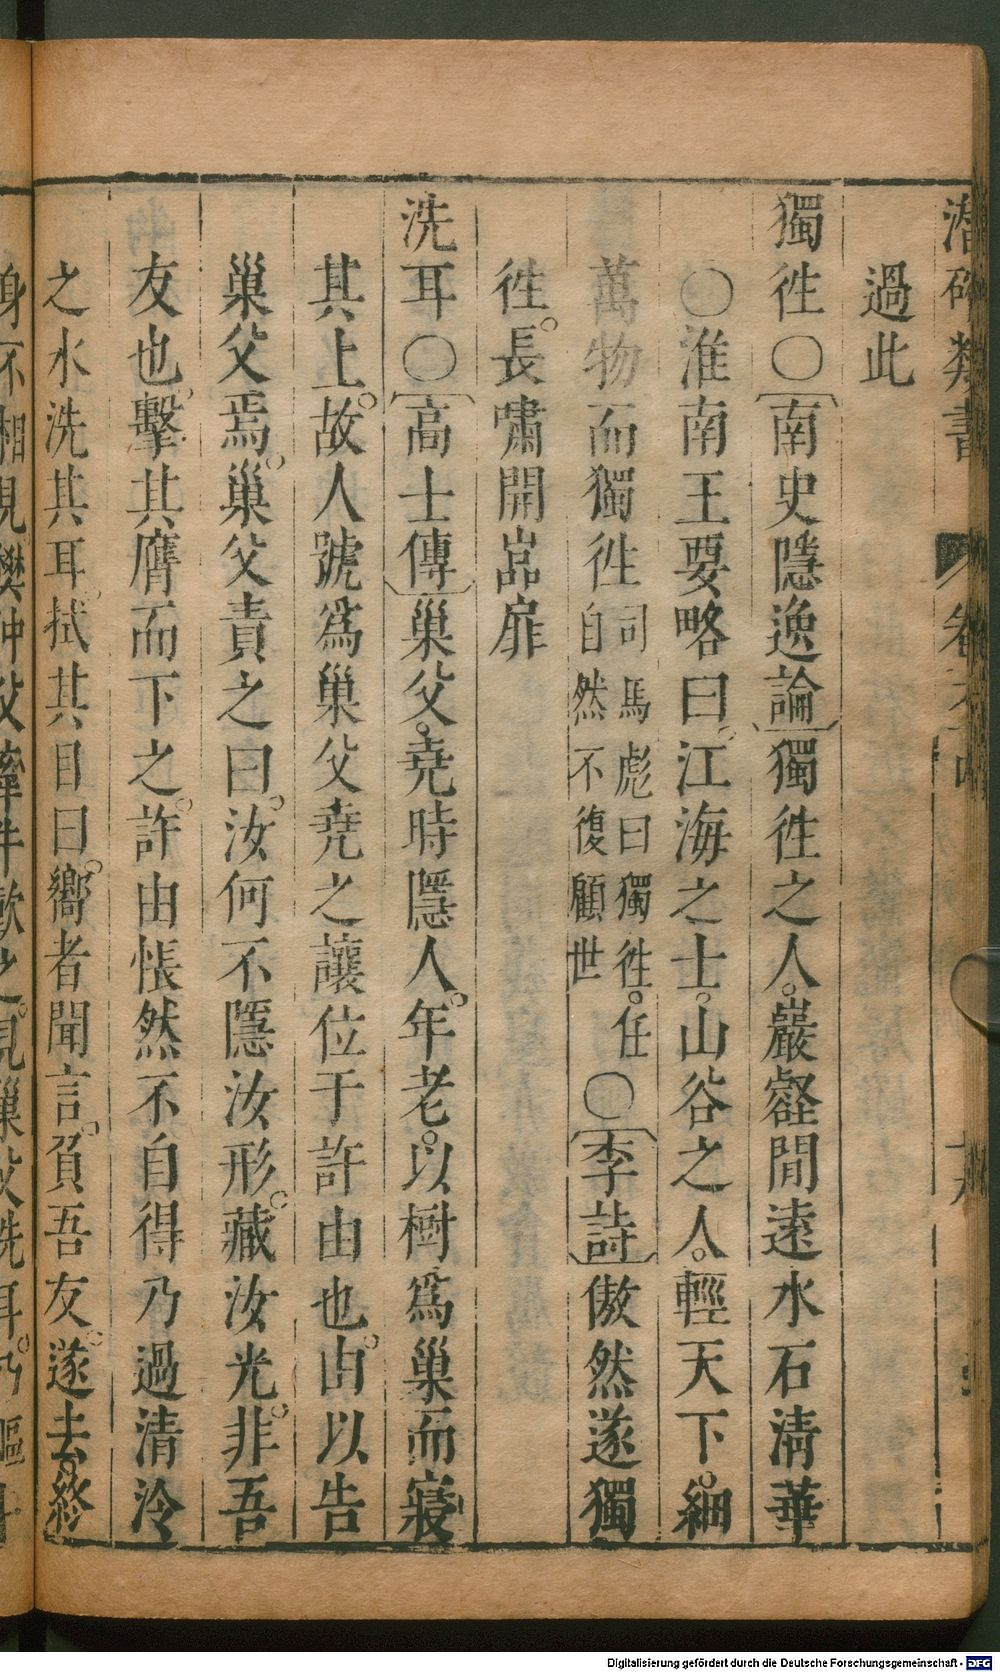 潛確類書
卷之
過此
獨徃〇〔南史隱逸論〕獨徃之人。巖壑閒遠水石清華
〇淮南王要略曰。江海之士。山谷之人。輕天下。細
萬物而獨徃司馬彪曰獨徃。任自然不復顧世〇〔李詩〕傲然遂獨
徃。長嘯開嵓扉
洗耳〇〔高士傳〕巢父。堯時隱人。年老。以樹爲巢而寢
其上。故人號爲巢父堯之讓位于許由也。由以告
巢父焉。巢父責之曰。汝何不隱汝形。藏汝光。非吾
友也。擊其膺而下之。許由悵然不自得乃過清泠
之水洗其耳。拭其目曰。嚮者聞言。負吾友。遂去。終
身不相見樊仲父牽牛飲之。見巢父洗耳。乃驅
Digitalisierung gefördert durch die Deutsche Forschungsgemeinschaft - DFG